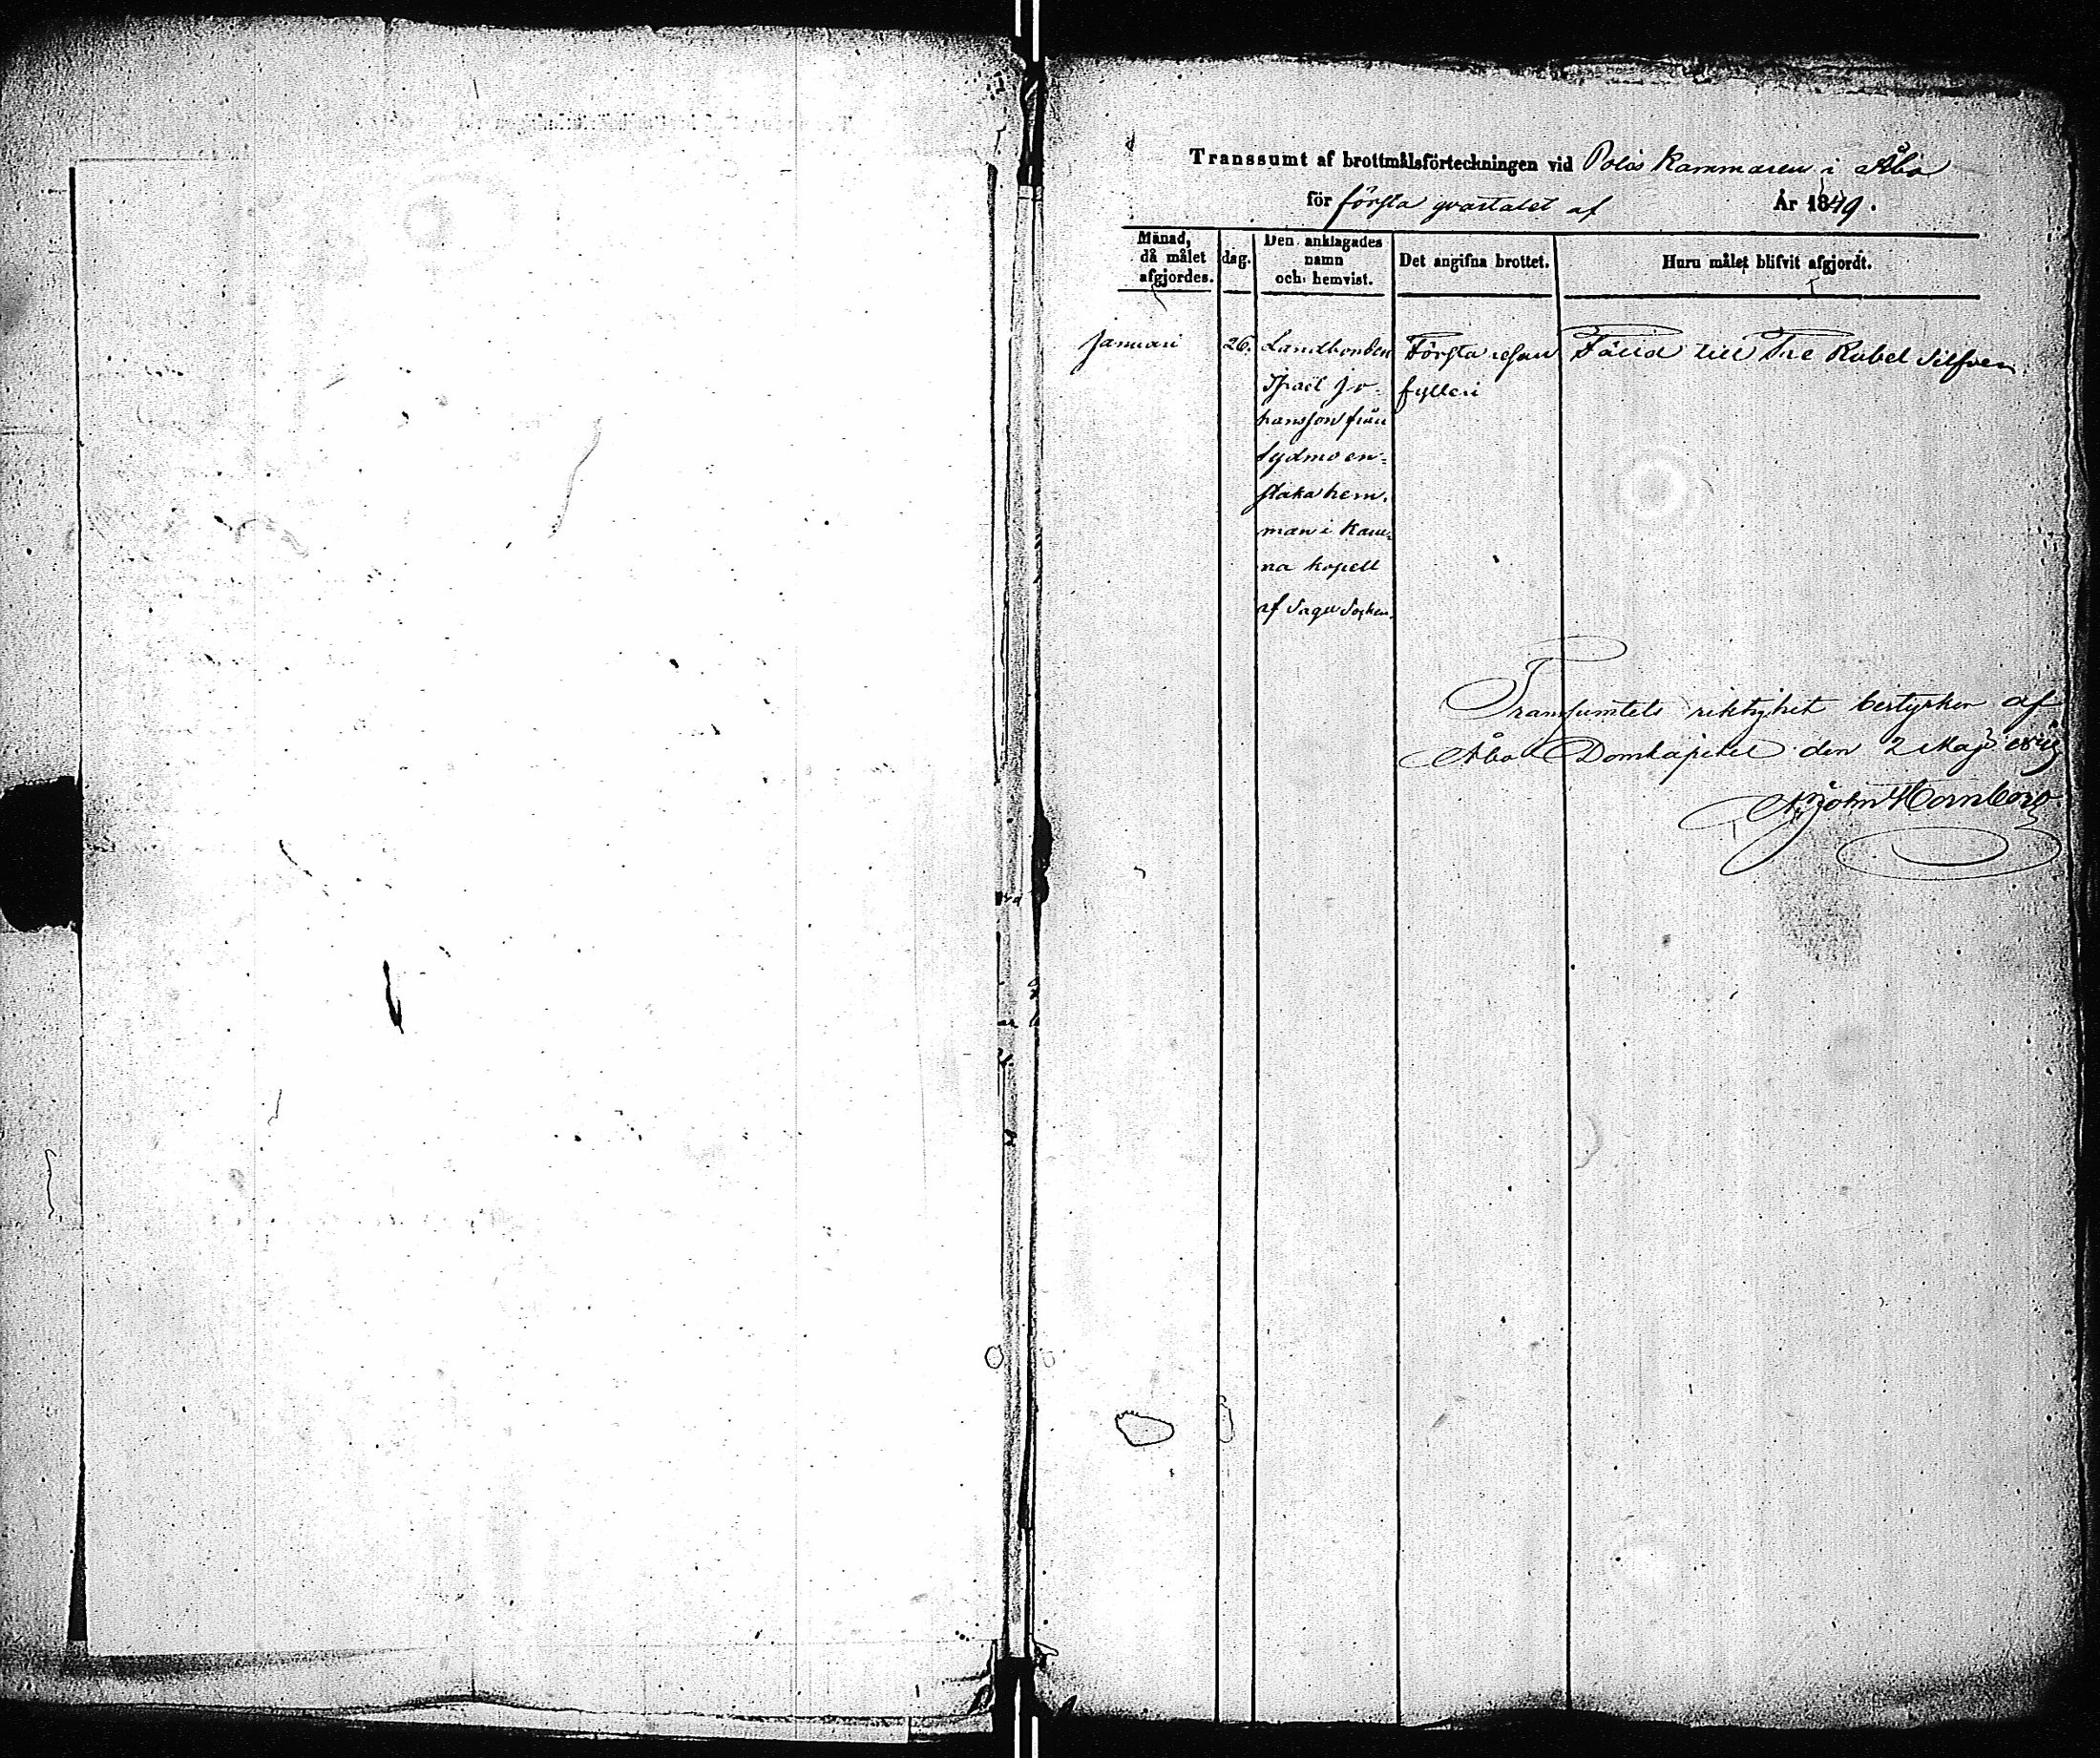 Transsumt af brottmålsförteckningen vid Polis Kammaren i Åbo
för första qvartalet af År 1849.
Månad, då målet afgjordes.
dag.
Den anklagades namn och hemvist.
Det angifna brottet.
Huru målet blifvit afgjordt.
Januari 26. Landbonden Första resan Fälld till Tre Rubel Silfver.
Israël Jo- fylleri
hansson från
Sydmo en-
staka hem-
man i Karu-
na kapell
af Sagu Socken.
Transsumtets riktighet bestyrker af
Åbo Domkapitel den 2 Maji 1849
John Hornborg